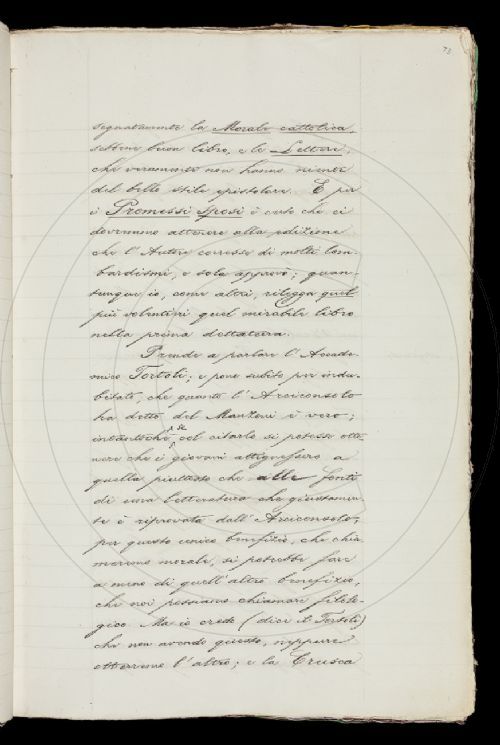 73
segnatamente la Morale cattolica,
sebbene buon libro, e le Lettere,
che veramente non hanno
del bello stile epistolare. E per
i Promessi Sposi è certo che ci
dovremmo attenere alla edizione
che l'Autore corresse di molti lom-
bardismi, e sola approvò; quan-
tunque io, come altri, rilegga quel
più volentieri quel mirabile libro
nella prima dettatura.
Prende a parlare l'Accade-
mico Tortoli; e pone subito per indu-
bitato, che quanto l'Arciconsolo
ha detto del Manzoni è vero;
intantoche, se col citarlo si potesse otte-
nere che i giovani attignessero a
quella piuttosto che alle fonti
di una letteratura che giustamen-
te è riprovata dall'Arciconsolo,
per questo unico benefizio, che chia-
meremo morale, si potrebbe fare
a meno di quell'altro benefizio,
che noi possiamo chiamare filolo-
gico. Ma io credo (dice il Tortoli)
che non avendo questo, neppure
otterremo l'altro; e la Crusca